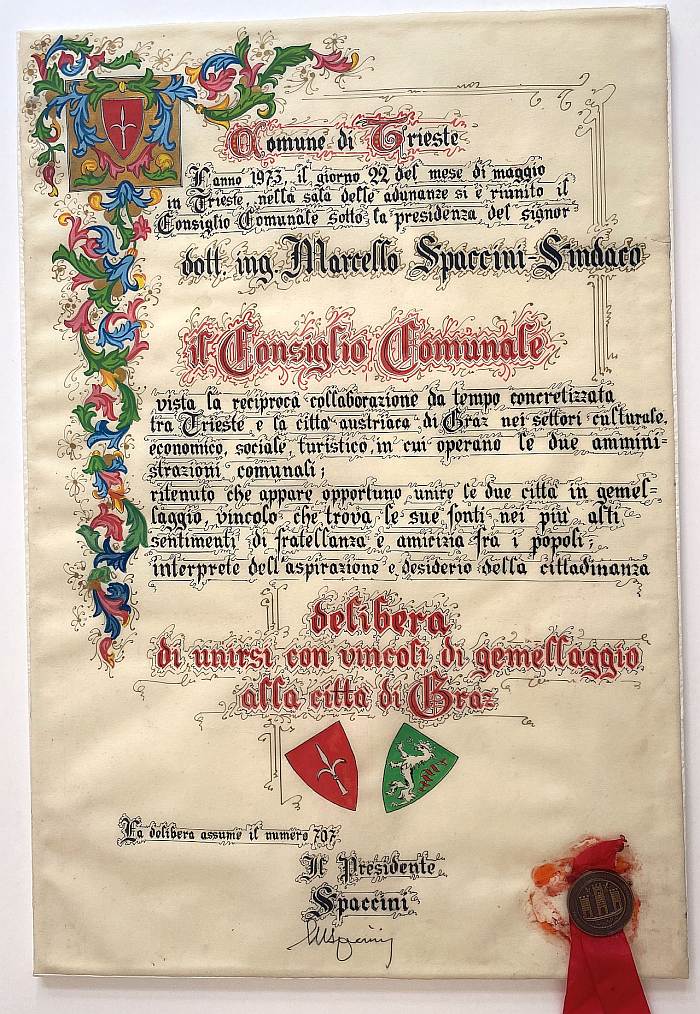 Comune di Trieste
L'anno 1973, il giorno 22 del mese di maggio
in Trieste, nella sala delle adunanze si è riunito il
Consiglio Comunale sotto la presidenza del signor
dott. ing. Marcello Spaccini-Sindaco
il Consiglio Comunale
vista la reciproca collaborazione da tempo concretizzata
tra Trieste e la città austriaca di Graz nei settori culturale,
economico, sociale, turistico, in cui operano le due ammini-
strazioni comunali;
ritenuto che appare opportuno unire le due città in gemel-
laggio, vincolo che trova le sue fonti nei più alti
sentimenti di fratellanza e amicizia fra i popoli;
interprete dell'aspirazione e desiderio della cittadinanza
delibera
di unirsi con vincoli di gemellaggio
alla città di Graz
La delibera assume il numero 707
Il Presidente
Spaccini